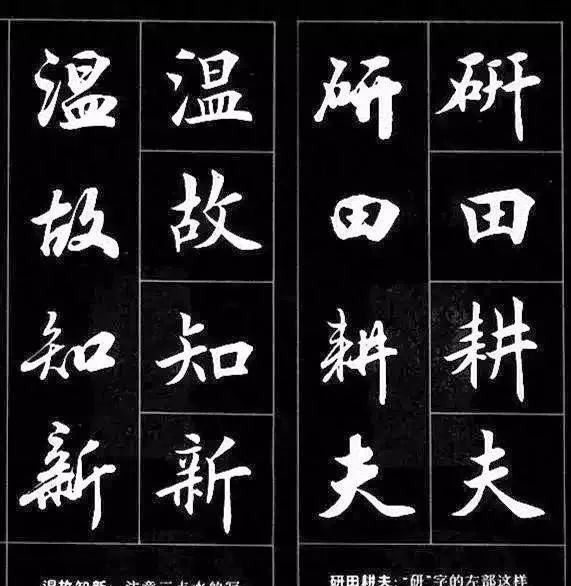 研田耕夫
研田耕夫
温故知新
温故知新
研田耕夫："研"字的左部这样
温故知新：注意三点水的写